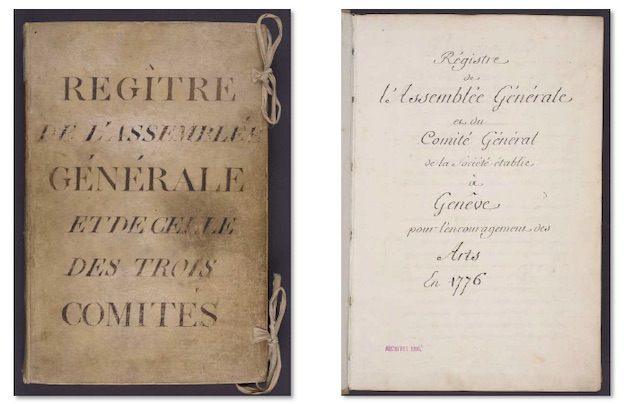 REGÎTRE
DE L'ASSEMBLÉE
GÉNÉRALE
ET DE CELLE
DES TROIS
COMITÉS
Régistre
de
l'Assemblée Générale
et du
Comité Général
de la Société établie
à
Genêve
pour l'encouragement des
Arts
En 1776
ARCHIVES